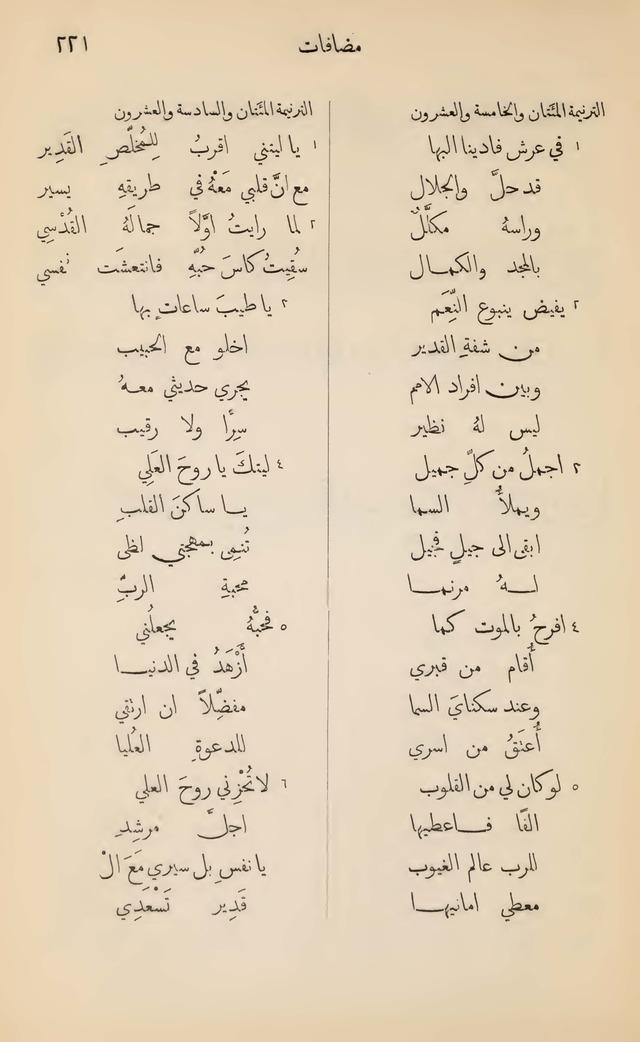 مضافات ٢٢١
الترنيمة المئتان والخامسة والعشرون
١ في عرش فادينا البها
قد حلَّ والجلال
وراسهُ مكلَّلٌ
بالمجد والكمال
٢ يفيض ينبوع النِّعَم
من شفةِ القدير
وبين افراد الامم
ليس لهُ نظير
٣ اجملُ من كلِّ جميل
ويملأُ السما
ابقى الى جيلٍ فجيل
لهُ مرنما
٤ افرحُ بالموت كما
أُقام من قبري
وعند سكنايَ السما
أُعتَقُ من اسري
٥ لو كان لي من القلوب
الفًا فاعطيها
للرب عالم الغيوب
معطي امانيها
الترنيمة المئتان والسادسة والعشرون
١ يا ليتني اقربُ لِلمُخلِّصِ القَدِير
مع انَّ قلبي مَعْهُ في طريقهِ يسير
٢ لما رايتُ اوَّلاً جمالَهُ القُدْسِي
سُقِيتُ كاسَ حبِّهِ فانتعشَت نفسي
٣ يا طيبَ ساعاتٍ بها
اخلو مع الحبيب
يجري حديثي معهُ
سِرًّا ولا رقيب
٤ ليتكَ يا روحَ العَلِي
يا ساكنَ القلبِ
تُنمِى بمهجتي لظى
محبةِ الربِّ
٥ فحبُّهُ يجعلُني
أَزْهَدُ في الدنيا
مفضِّلاً ان ارتقي
للدعوةِ العُليا
٦ لا تُخْزِني روحَ العلي
اجلَّ مرشِدِ
يا نفسِ بل سيري مَعَ الْ
قَدِير تَسْعَدِي